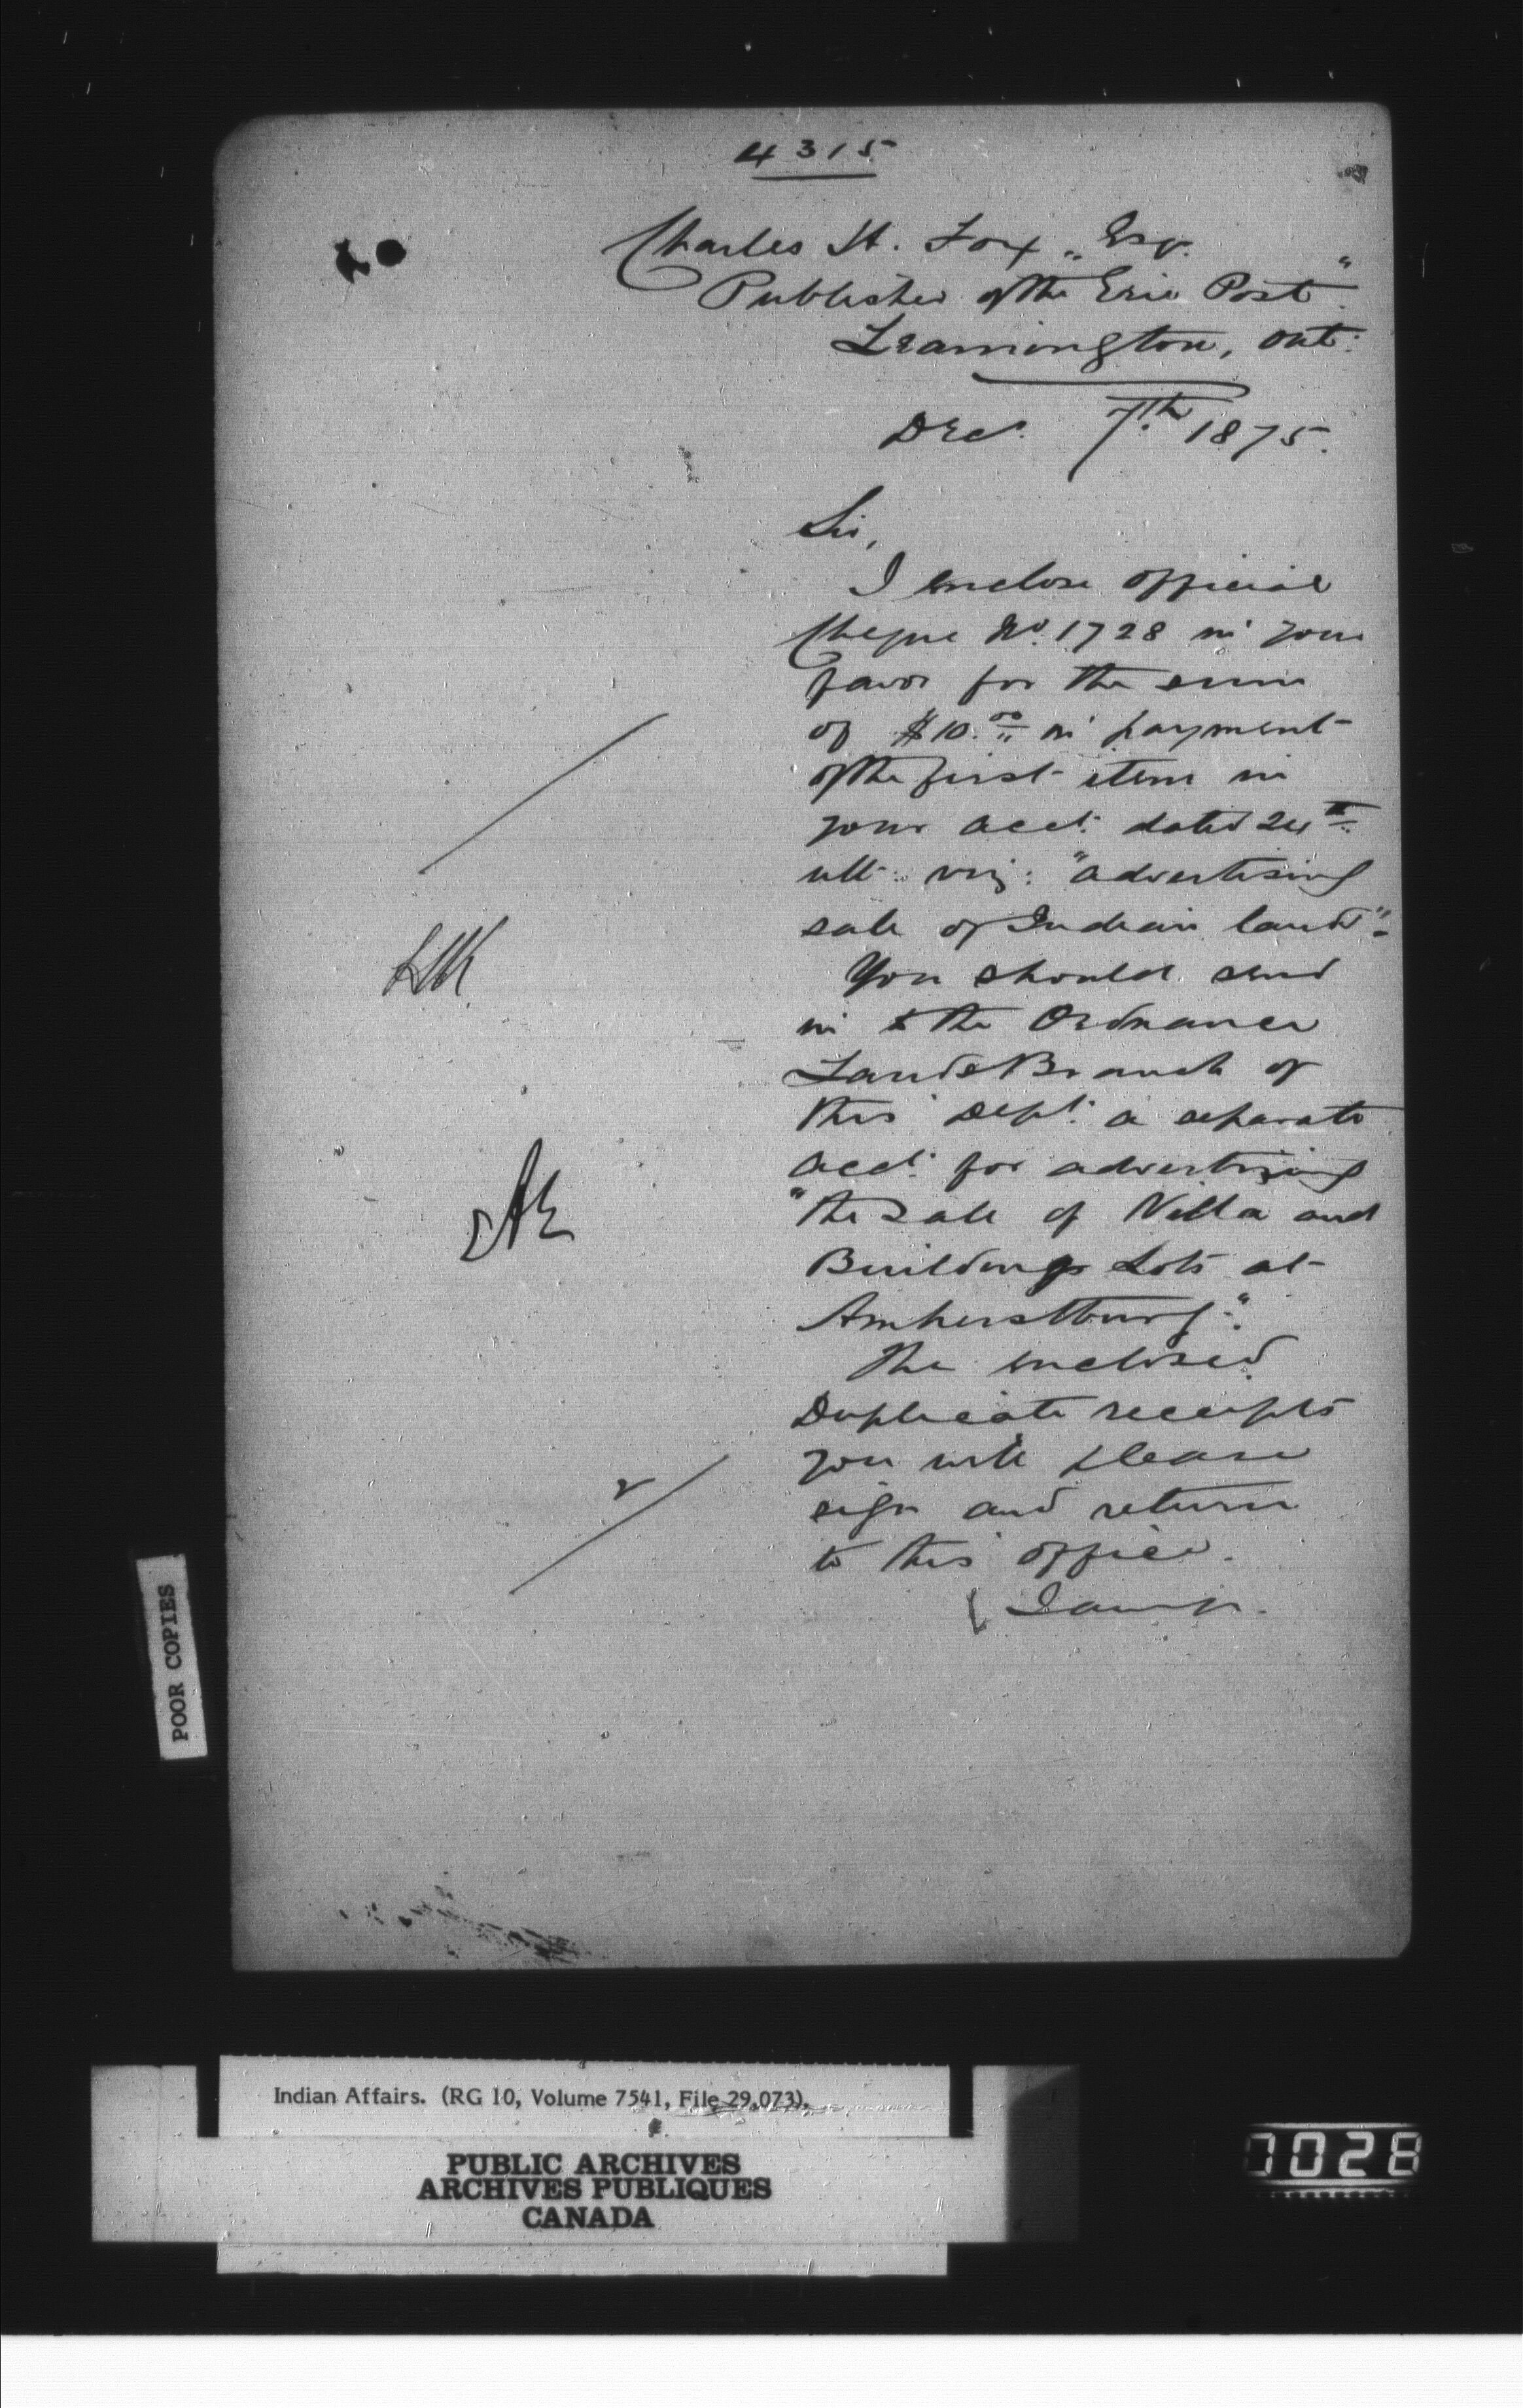 4315
Charles H. Fox, Esq.
Publisher of the "Erie Post"
Leamington, Ont:
Decr. 7th. 1875.
Sir,
I enclose official
Cheque No. 1728 in your
favor for the sum
of $10.00 in payment
of the first item in
your acct. dated 24th
ult: viz: "advertising
sale of Indian land".
You should send
in to the Ordnance
Lands Branch of
this Dept. a separate
acct. for advertising
"the Sale of Villa and
Building Lots at
Amherstburg".
The enclosed
Duplicate receipts
you will please
sign and return
to this office.
POOR COPIES
Indian Affairs. (RG 10, Volume 7541, File 29,073).
PUBLIC ARCHIVES
ARCHIVES PUBLIQUES
CANADA
0028